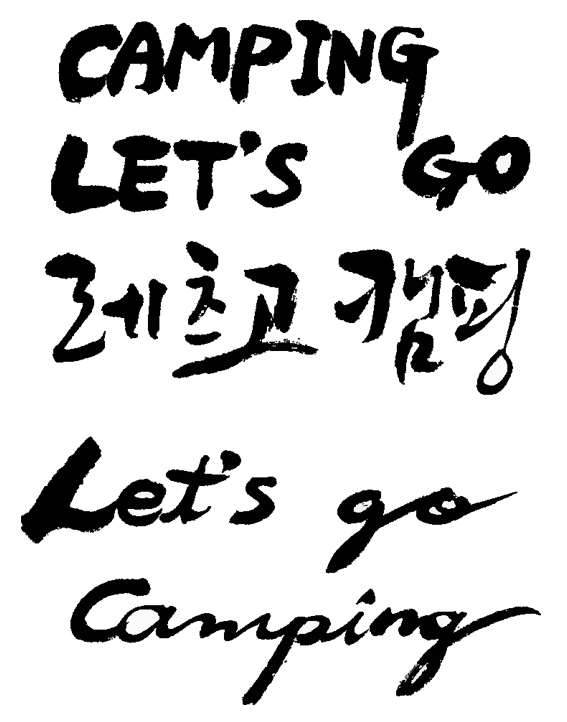 CAMPING
LET'S GO
레츠고 캠핑
Let's go
Camping